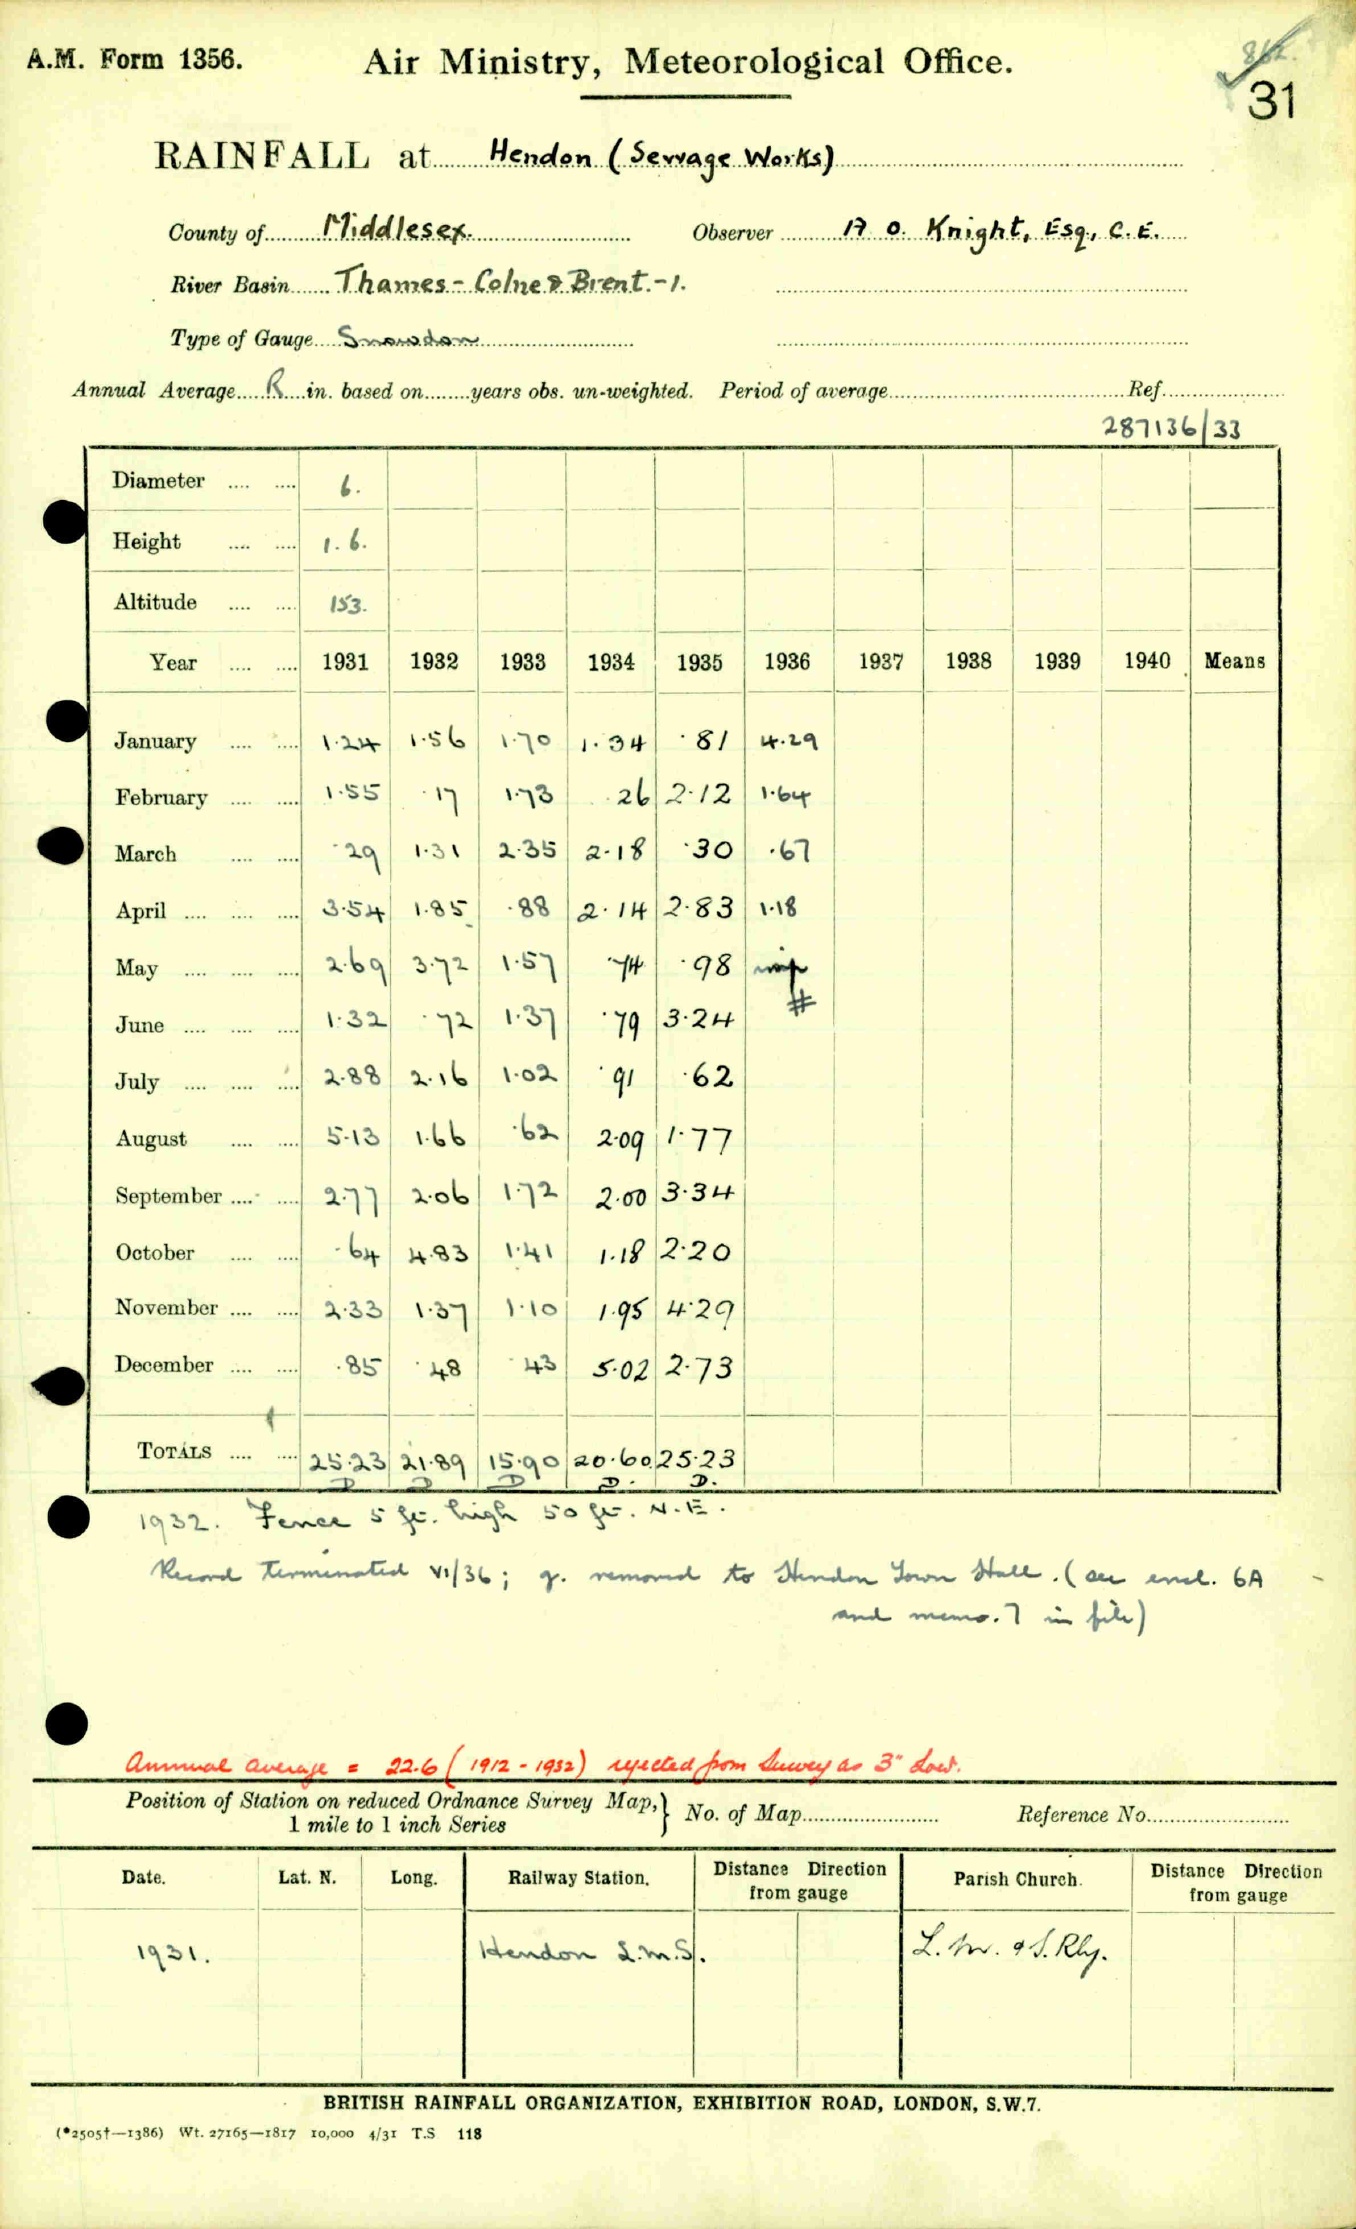 862.
A.M. Form 1356. Air Ministry, Meteorological Office. 31
RAINFALL at Hendon (Sewage Works)
County of Middlesex. Observer A O. Knight, Esq., C.E.
River Basin Thames - Colne & Brent. - 1.
Type of Gauge Snowdon
Annual Average R in. based on years obs. un-weighted. Period of average Ref.
287136/33
Diameter 6.
Height 1. 6.
Altitude 153.
Year 1931 1932 1933 1934 1935 1936 1937 1938 1939 1940 Means
January 1.24 1.56 1.70 1.34 .81 4.29
February 1.55 .17 1.73 .26 2.12 1.64
March .29 1.31 2.35 2.18 .30 .67
April 3.54 1.85 .88 2.14 2.83 1.18
May 2.69 3.72 1.57 .74 .98
#
June 1.32 .72 1.37 .79 3.24
July 2.88 2.16 1.02 .91 .62
August 5.13 1.66 .62 2.09 1.77
September 2.77 2.06 1.72 2.00 3.34
October .64 4.83 1.41 1.18 2.20
November 2.33 1.37 1.10 1.95 4.29
December .85 .48 .43 5.02 2.73
TOTALS 25.23 21.89 15.90 20.60 25.23
D D D D. D.
1932. Fence 5 ft. high 50 ft. N.E.
Record terminated VI/36; g. removed to Hendon Town Hall. (see encl. 6A
and memo. 7 in file)
Annual average = 22.6 (1912 - 1932) rejected from Survey as 3" low.
Position of Station on reduced Ordnance Survey Map, } No. of Map Reference No.
1 mile to 1 inch Series
Date. Lat. N. Long. Railway Station. Distance Direction from gauge Parish Church. Distance Direction from gauge
1931. Hendon L.M.S. L. M. & S. Rly.
BRITISH RAINFALL ORGANIZATION, EXHIBITION ROAD, LONDON, S.W.7.
(*2505†—1386) Wt. 27165—1817 10,000 4/31 T.S 118